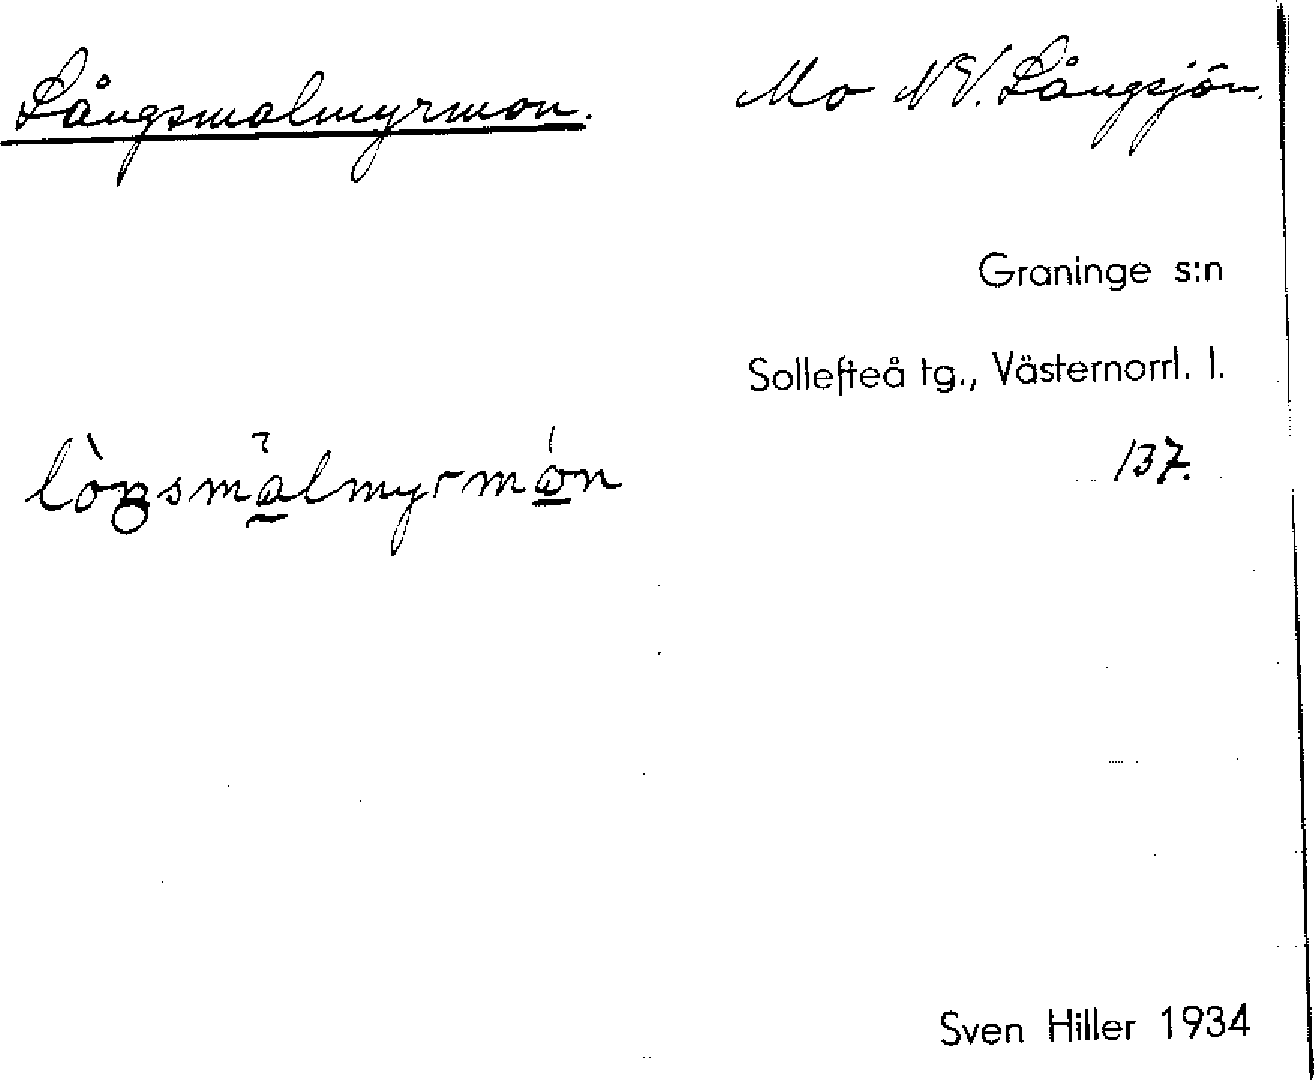 Långsmalmyrmon.
Mo NV. Långsjön.
Graninge s:n
Sollefteå tg., Västernorrl. l.
137.
Sven Hiller 1934